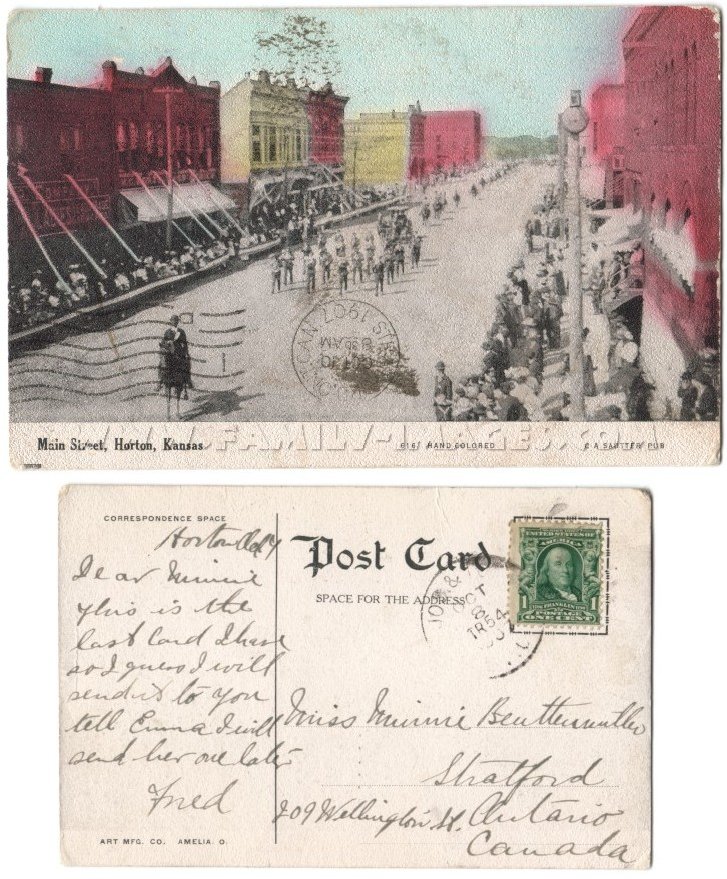 Main Street, Horton, Kansas
616/ HAND COLORED
C A SAUTTER PUB
WWW.FAMILY-IMAGES.COM
MICHIGAN
1907
AM
CORRESPONDENCE SPACE
Post Card
SPACE FOR THE ADDRESS
Horton
Dear Minnie
this is the
last Card I have
so I guess I will
send it to you
tell Emma I will
send her one later
Fred
OCT
UNITED STATES OF
AMERICA
FRANKLIN
1 1
POSTAGE
ONE CENT
Miss Minnie Beuttenmuller
Stratford
209 Wellington St. Ontario
Canada
ART MFG. CO. AMELIA. O.